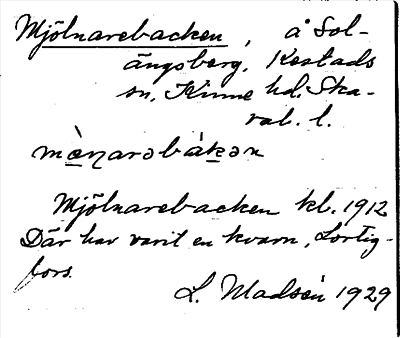 Mjölnarebacken, å Sol-
ängsberg, Kestads
sn, Kinne hd. Ska-
rab. l.
mè̱ṇarəbák̲ən
Mjölnarebacken kb. 1912
Där har varit en kvarn,
fors.
L. Madsén 1929